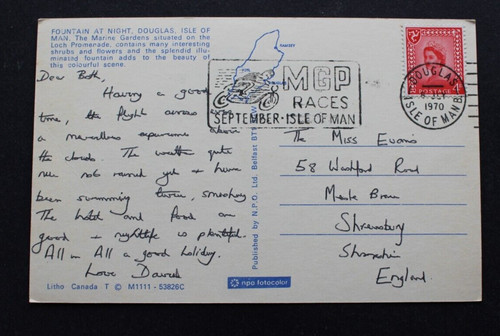 FOUNTAIN AT NIGHT, DOUGLAS, ISLE OF
MAN. The Marine Gardens situated on the
Loch Promenade, contains many interesting
shrubs and flowers and the splendid illu-
minated fountain adds to the beauty of
this colourful scene.
Dear Both,
Having a good
time, the flight across was
a marvellous experience above
the clouds. The weather quite
nice not rained yet & have
been swimming twice, smashing
The hotel and food are
good & nightlife is plentiful.
All in All a good holiday.
Love
Litho Canada T © M1111 - 53826C
Published by N.P.O. Ltd. Belfast
npo fotocolor
RAMSEY
MGP
RACES
SEPTEMBER·ISLE OF MAN
POSTAGE
DOUGLAS
1970
ISLE OF MAN B
The Miss Evans
58 Road
Meole Brace
Shrewsbury
Shropshire
England.